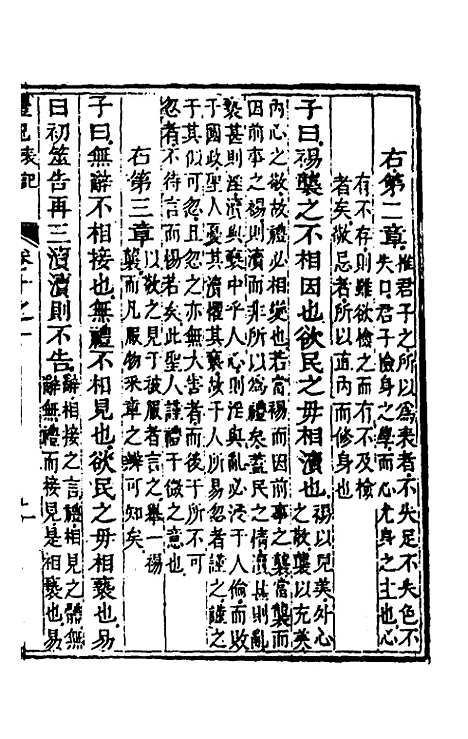 右第二章惟君子之所以為表者不失足不失色不
失口君子檢身之學而心尤身之主也心
有不存則雖欲檢之而有不及檢
者矣敬忌者所以直內而修身也
子曰裼襲之不相因也欲民之毋相瀆也裼以見美外心
之敬襲以充美
內心之敬故禮必相變也若當裼而因前事之襲當襲而
因前事之裼則瀆而非所以為禮矣蓋民之情瀆甚則亂
褻甚則淫瀆與褻中乎人心則淫與亂必浸于人倫而敗
于國政聖人憂其瀆懼其褻故于人所易忽者謹之謹之
于其似可忽且忽之亦無大害者而後于所不可
忽者不待言而矣此聖人謹禮于微之意也
右第三章以敬之見于被服者言之舉一裼
襲而凡服物采章之辨可知矣
子曰無辭不相接也無禮不相見也欲民之毋相褻也易
曰初筮告再三瀆瀆則不告辭相接之言禮相見之體無
辭無禮而接見是相褻也易
禮記表記